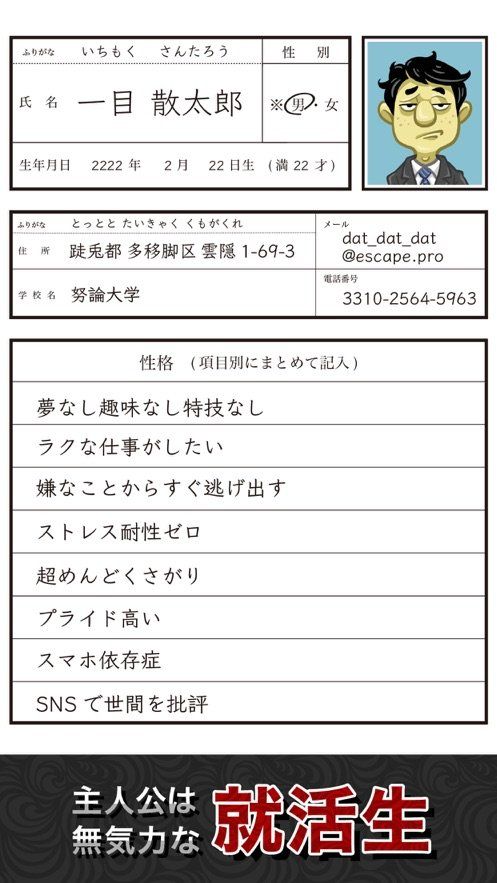 ふりがな いちもく さんたろう 性 別
氏 名 一目 散太郎 ※男・女
生年月日 2222 年 2 月 22 日生 (満 22 才)
ふりがな とっとと たいきゃく くもがくれ
住 所 跿兎都 多移脚区 雲隠 1-69-3
メール
dat_dat_dat
@escape.pro
学 校 名 努論大学
電話番号
3310-2564-5963
性格 (項目別にまとめて記入)
夢なし趣味なし特技なし
ラクな仕事がしたい
嫌なことからすぐ逃げ出す
ストレス耐性ゼロ
超めんどくさがり
プライド高い
スマホ依存症
SNS で世間を批評
主人公は
無気力な 就活生